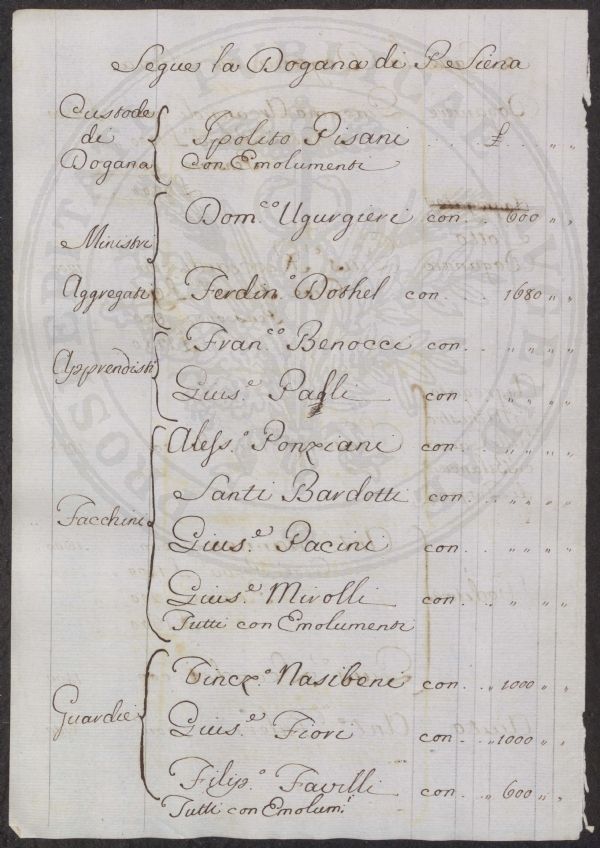 Segue la Dogana di Pe Siena
Custode di Dogana
Ipolito Pisani . . £ . „ „
Con Emolumenti
Ministri Aggregati
Dom.co Ugurgieri con . . 600 „ „
Ferdin.o Dothel con . . 1680 „ „
Apprendisti
Fran.co Benocci con . „ „ „ „
Gius.e Pagli con „ „ „
Facchini
Aless.o Ponziani con . „ „ „ „
Santi Bardotti con . „ „ „ „
Gius.e Pacini con . . „ „ „ „
Gius.e Mirolli con . . „ „ „
Tutti con Emolumenti
Guardie
Vincz.o Nasibeni con . . „ 1000 „ „
Gius.e Fiori con . . „ 1000 „ „
Filip.o Favilli con . . „ 600 „ „
Tutti con Emolum.i